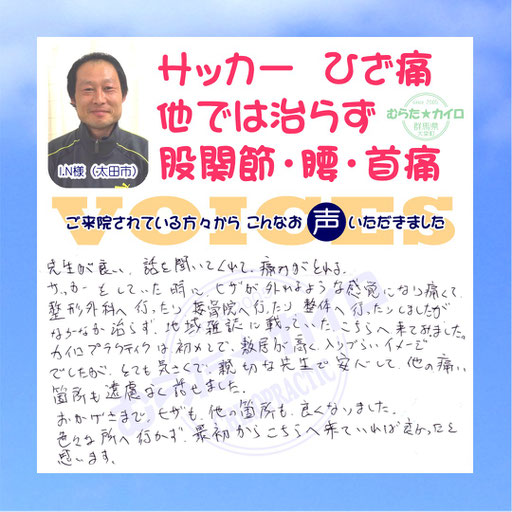 サッカー ひざ痛
他では治らず
股関節・腰・首痛
since 2005
むらた★カイロ
群馬県
大泉町
I.N様(太田市)
VOICES
ご来院されている方々から こんなお 声 いただきました
先生が良い。話を聞いてくれて、痛みがとれる。
サッカーをしていた時に、ヒザが外れるような感覚になり痛くて、
整形外科へ行ったり 接骨院へ行ったり 整体へ行ったりしましたが
なかなか治らず、地域雑誌に載っていた、こちらへ来てみました。
カイロプラクティクは初めてで、敷居が高く、入りづらいイメージ
でしたが、とても気さくで、親切な先生で安心して、他の痛い
箇所も遠慮なく話せました。
おかげさまで、ヒザも、他の箇所も、良くなりました。
色々な所へ行かず、最初からこちらへ来ていれば良かったと
思います。